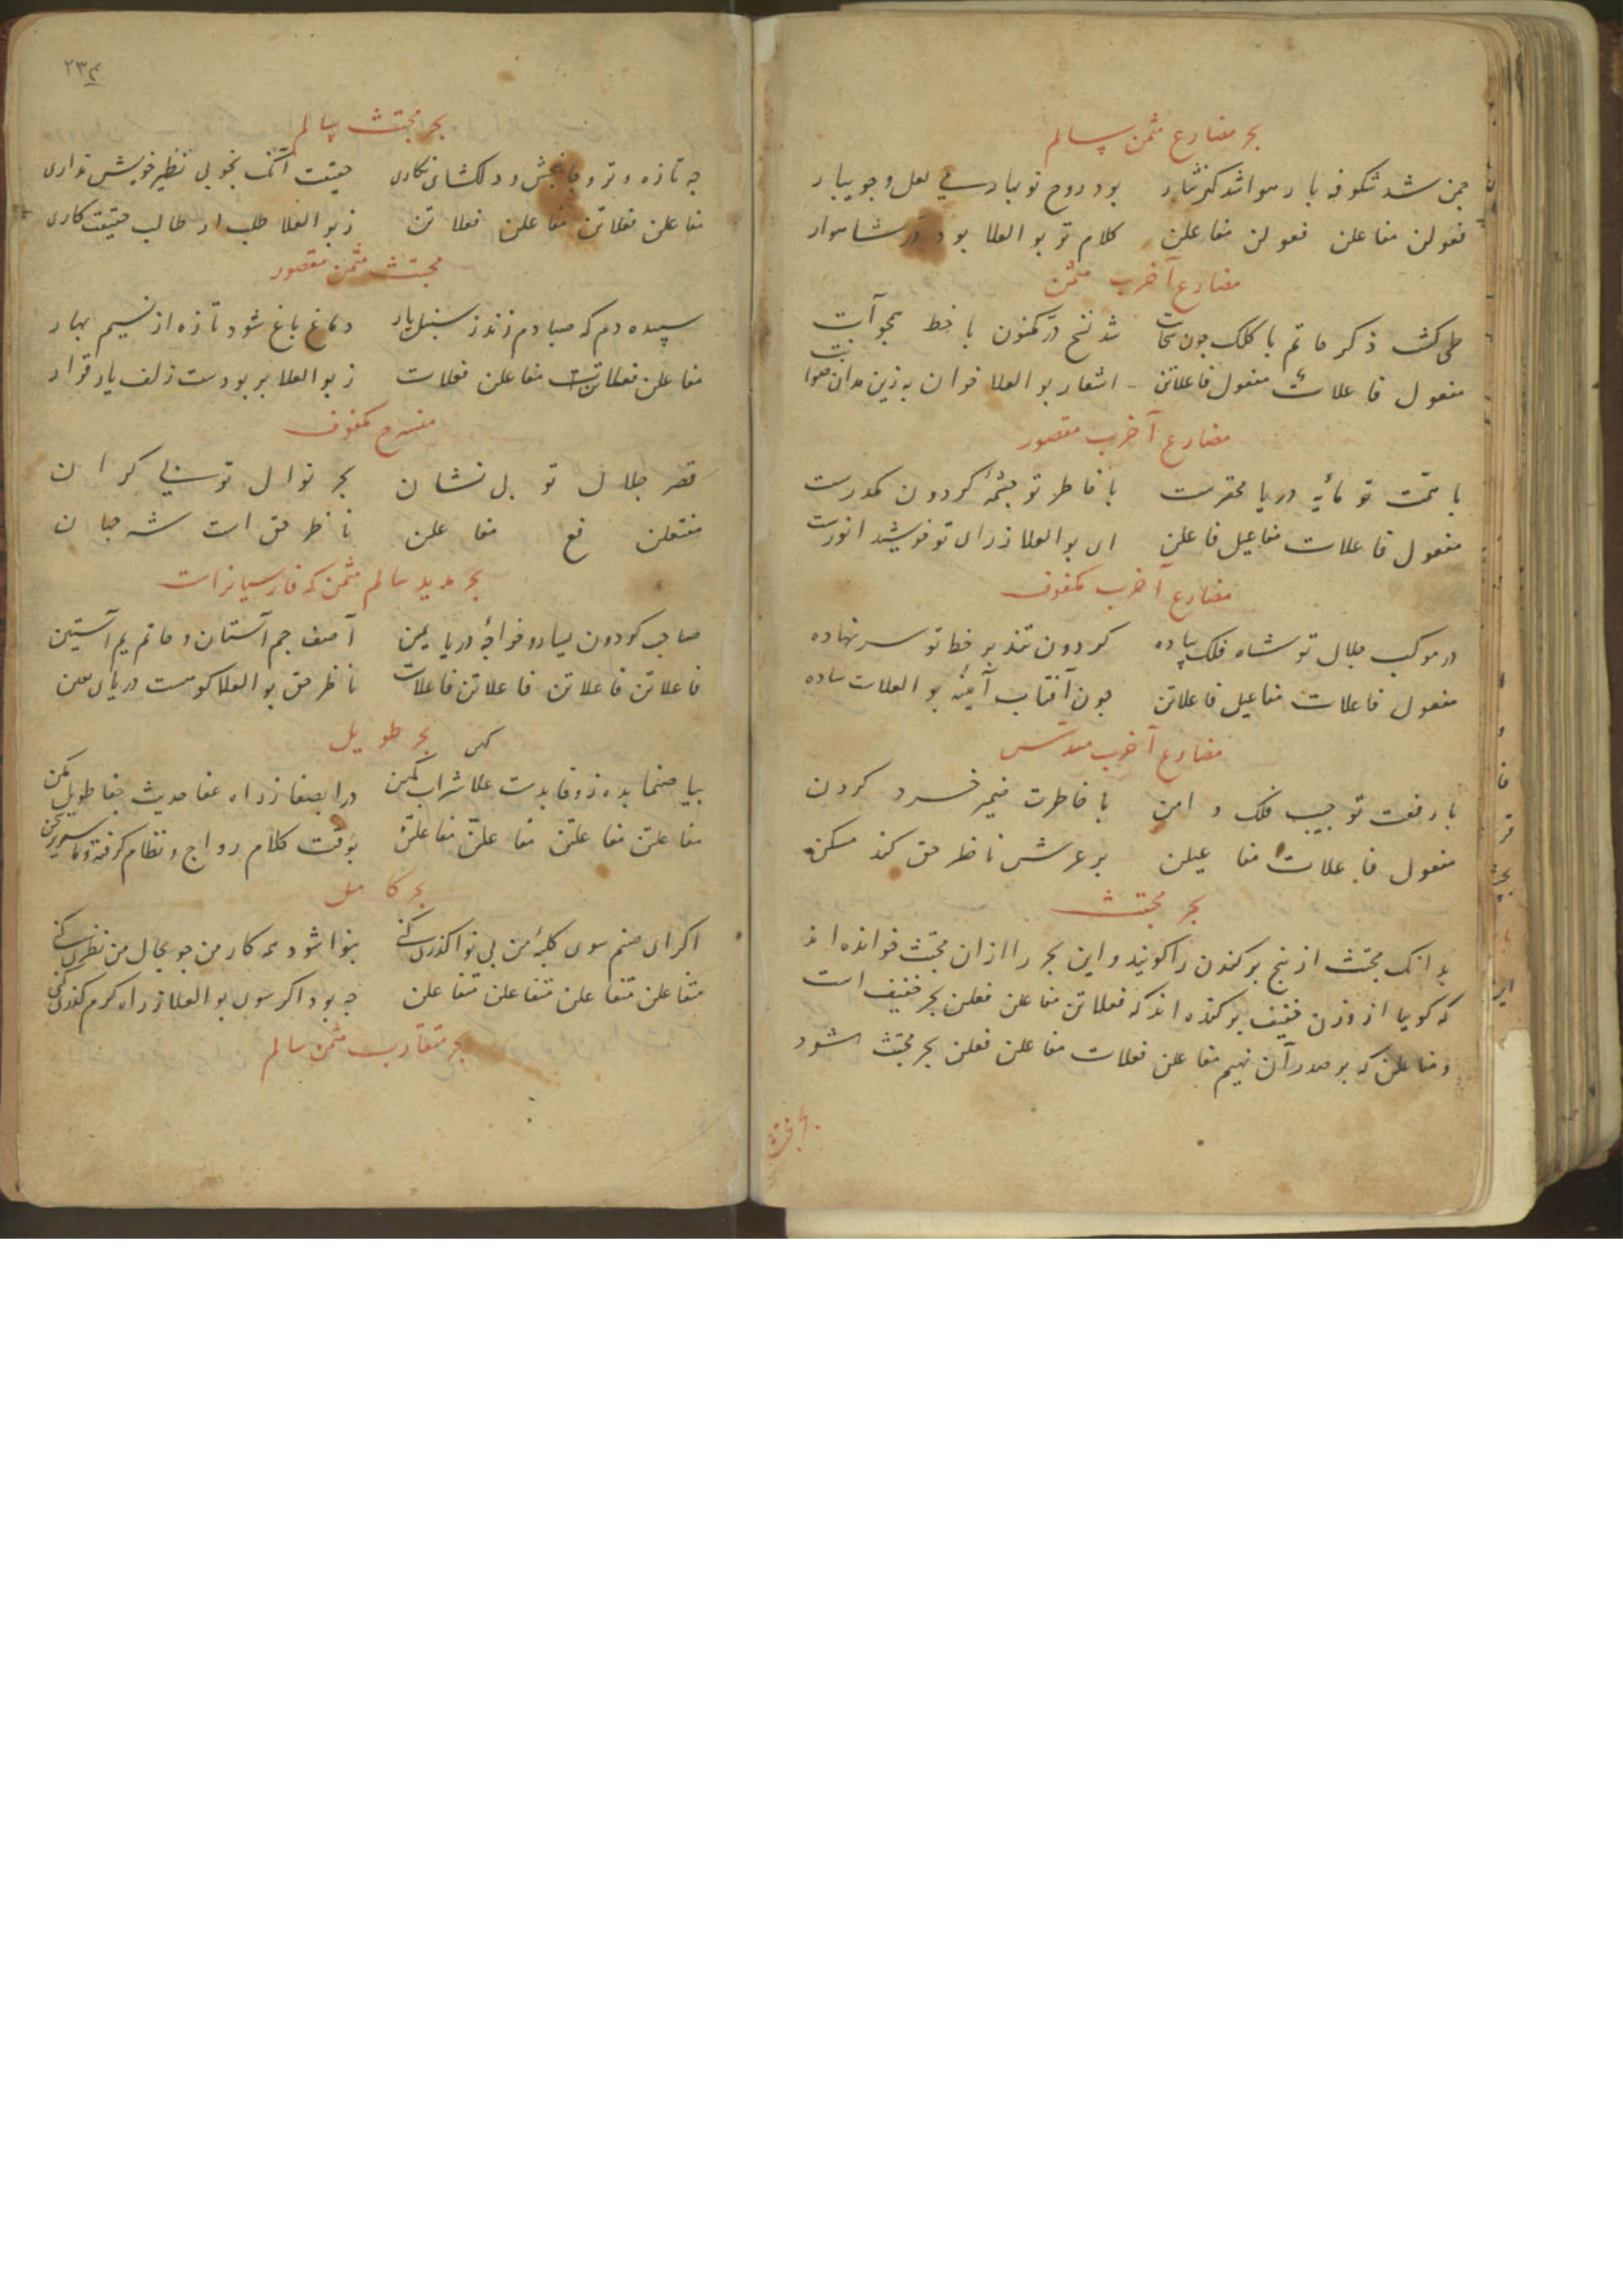 بحر مضارع مثمن سالم
چمن شد شکوفه بار هوا شد کهر نثار بود روح نوبهار سی لعل و جویبار
فعولن مفاعلن فعولن مفاعلن کلام تو بو العلا بود در شاهوار
مضارع آخرب مثمن
طی کشت ذکر حاتم با کلک چون شد نسخ در مکنون با خط همچو آبت
مفعول فاعلات مفعول فاعلاتن اشعار بو العلا خوان به زین مدان
مضارع آخرب مقصور
با همت تو مایه دریا محقرست با خاطر تو چشمهٔ کردون مکدرست
مفعول فاعلات مفاعیل فاعلن ای بو العلا ز رای تو خورشید انورست
مضارع آخرب مکفوف
در موکب جلال تو شاه فلک پیاده کردون تند بر خط تو سر نهاده
مفعول فاعلات مفاعیل فاعلاتن چون آفتاب آینه بو العلات ساده
مضارع آخرب مسدس
با رفعت تو جیب فلک دامن با خاطرت ضمیر خرد کردن
مفعول فاعلات مفاعیلن بر عرش ناظر حق کند مسکن
بحر مجتث
بدانک مجتث از بیخ برکندن را کویند و این بحر را از ان مجتث خوانده اند
که کویا از وزن خفیف برکنده اند که فعلاتن مفاعلن فعلن بحر خفیف است
و مفاعلن که بر صدر آن نهیم مفاعلن فعلات مفاعلن فعلن بحر مجتث شود
بحر مجتث
۲۳۴
بحر مجتث سالم
چه تازه و تر و جانبخش و دلکشای نکاری حقیقت آنک بخوبی نظیر خویش نداری
مفاعلن فعلاتن مفاعلن فعلاتن ز بو العلا طلب ار طالب حقیقت کاری
مجتث مثمن مقصور
سپیده دم که صبا دم زند ز سنبل یار دماغ باغ شود تازه از نسیم بهار
مفاعلن فعلاتن مفاعلن فعلات ز بو العلا بربودست زلف یار قرار
منسرح مکفوف
قصر جلال تو بی نشان بحر نوال تو بی کران
مفتعلن فع مفاعلن ناظر حق است شه جهان
بحر مدید سالم مثمن که فارسیانراست
صاحب کردون یسار و خواجهٔ دریا یمین آصف جم آستان و حاتم یم آستین
فاعلاتن فاعلاتن فاعلاتن فاعلات ناظر حق بو العلا کوهست دریای معین
بحر طویل
بیا صنما بده ز وفا بدست علا شراب کهن درا بصفا ز راه عفا حدیث جفا طویل مکن
مفاعلتن مفاعلتن مفاعلتن مفاعلتن بوقت کلام رواج و نظام کرفته
بحر کامل
اکر ای صنم سوی کلبهٔ من بی نوا کذری کنی بنوا شود همه کار من چو بحال من نظری کنی
متفاعلن متفاعلن متفاعلن متفاعلن چه بود اکر سوی بو العلا ز راه کرم کذری کنی
بحر متقارب مثمن سالم